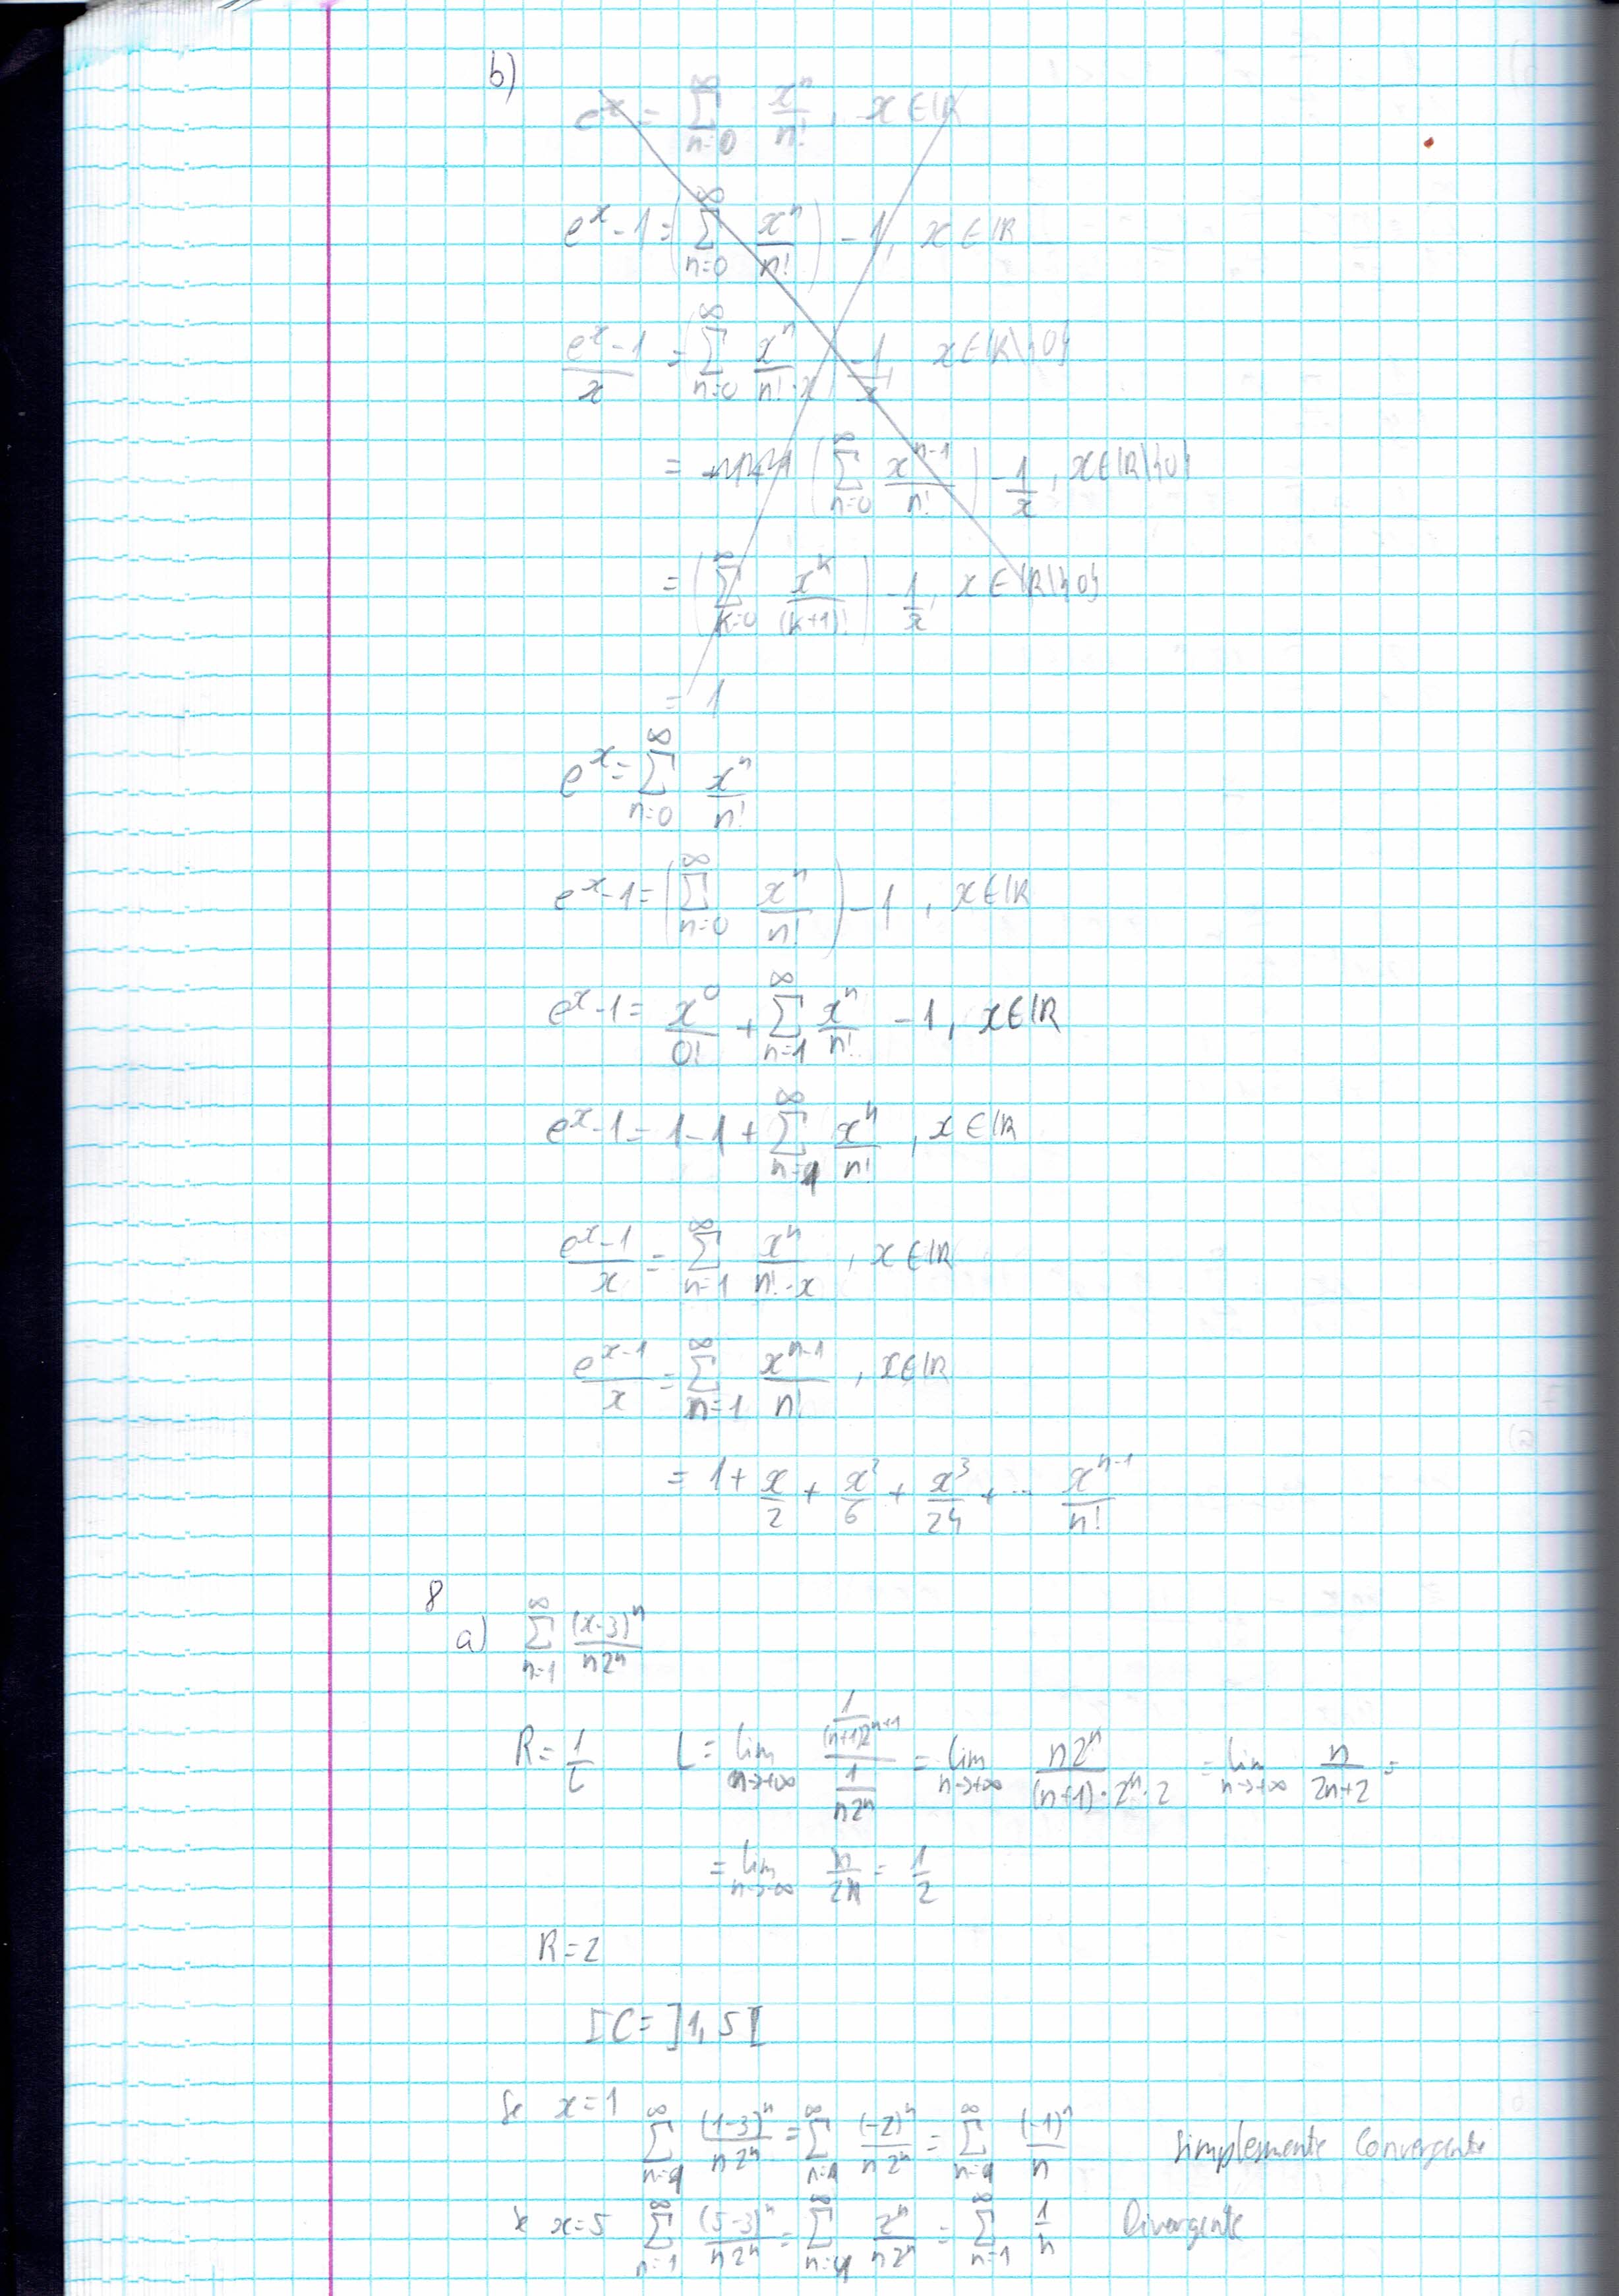 b)
e^x = ∑_{n=0}^{∞} x^n/n! , x ∈ ℝ
e^x - 1 = (∑_{n=0}^{∞} x^n/n!) - 1, x ∈ ℝ
(e^x - 1)/x = (∑_{n=0}^{∞} x^n/(n!·x)) - 1/x, x ∈ ℝ\{0}
= (∑_{n=0}^{∞} x^{n-1}/n!) - 1/x, x ∈ ℝ\{0}
= (∑_{k=0}^{∞} x^k/(k+1)!) - 1/x, x ∈ ℝ\{0}
= 1
e^x = ∑_{n=0}^{∞} x^n/n!
e^x - 1 = (∑_{n=0}^{∞} x^n/n!) - 1 , x ∈ ℝ
e^x - 1 = x^0/0! + ∑_{n=1}^{∞} x^n/n! - 1, x ∈ ℝ
e^x - 1 = 1 - 1 + ∑_{n=1}^{∞} x^n/n! , x ∈ ℝ
(e^x - 1)/x = ∑_{n=1}^{∞} x^n/(n!·x) , x ∈ ℝ
(e^x - 1)/x = ∑_{n=1}^{∞} x^{n-1}/n! , x ∈ ℝ
= 1 + x/2 + x^2/6 + x^3/24 + ... x^{n-1}/n!
8
a) ∑_{n=1}^{∞} (x-3)^n/(n2^n)
R = 1/L L = lim_{n→+∞} (1/((n+1)2^{n+1}))/(1/(n2^n)) = lim_{n→+∞} n2^n/((n+1)·2^n·2) = lim_{n→+∞} n/(2n+2) =
= lim_{n→+∞} n/2n = 1/2
R = 2
IC = ]1, 5[
Se x = 1 ∑_{n=1}^{∞} (1-3)^n/(n2^n) = ∑_{n=1}^{∞} (-2)^n/(n2^n) = ∑_{n=1}^{∞} (-1)^n/n Simplesmente Convergente
Se x = 5 ∑_{n=1}^{∞} (5-3)^n/(n2^n) = ∑_{n=1}^{∞} 2^n/(n2^n) = ∑_{n=1}^{∞} 1/n Divergente